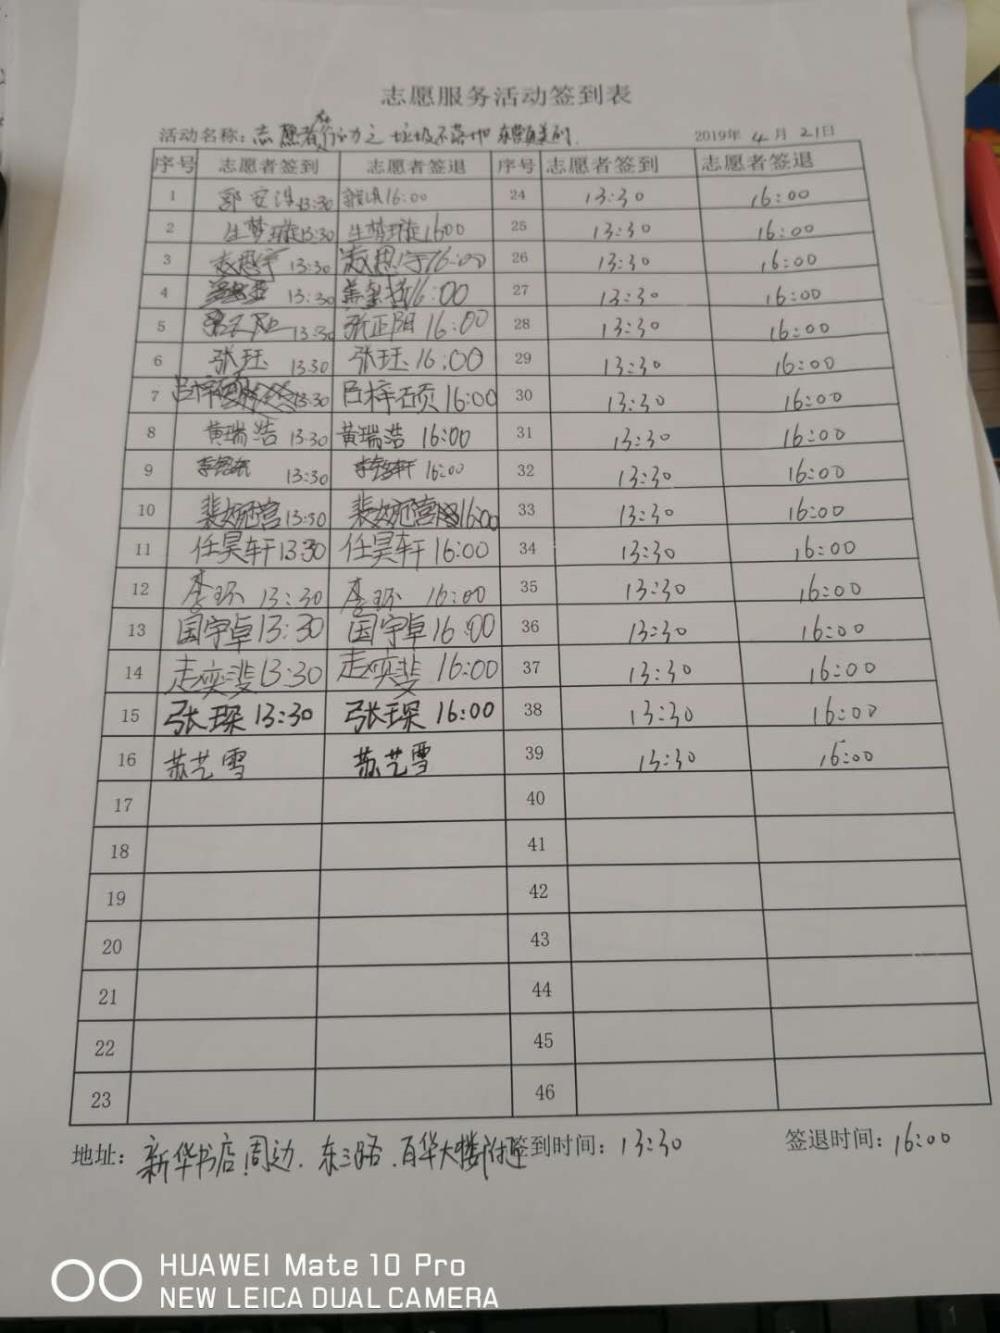 志愿服务活动签到表
活动名称: 志愿者在行动之 垃圾不落地 东营更美丽. 2019年 4 月 21日
序号 志愿者签到 志愿者签退 序号 志愿者签到 志愿者签退
1 13:30 16:00 24 13:30 16:00
2 生梦璇13:30 生梦璇16:00 25 13:30 16:00
3 13:30 16:00 26 13:30 16:00
4 13:30 16:00 27 13:30 16:00
5 13:30 张正阳 16:00 28 13:30 16:00
6 张珏 13:30 张珏 16:00 29 13:30 16:00
7 吕梓 13:30 吕梓 16:00 30 13:30 16:00
8 黄瑞浩 13:30 黄瑞浩 16:00 31 13:30 16:00
9 13:30 16:00 32 13:30 16:00
10 13:30 16:00 33 13:30 16:00
11 任昊轩13:30 任昊轩16:00 34 13:30 16:00
12 李环 13:30 李环 16:00 35 13:30 16:00
13 国宇卓13:30 国宇卓16:00 36 13:30 16:00
14 走奕斐13:30 走奕斐 16:00 37 13:30 16:00
15 张琛 13:30 张琛 16:00 38 13:30 16:00
16 苏艺雪 苏艺雪 39 13:30 16:00
17 40
18 41
19 42
20 43
21 44
22 45
23 46
地址: 新华书店周边. 东三路. 百华大楼附近 签到时间: 13:30 签退时间: 16:00
HUAWEI Mate 10 Pro
NEW LEICA DUAL CAMERA